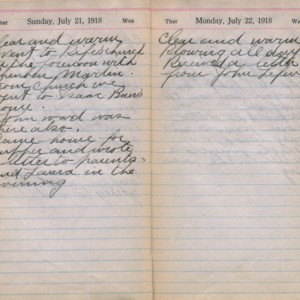 Sunday, July 21, 1918 Wea
lear and warm
ent to
the forenoon with
Mardin.
rom Church we
ent to Isaac
ouse.
John Ward was
here also.
ame home for
upper and wrote
letter to parents
nd Laura in the
evening
Ther Monday, July 22, 1918 Wea
Clear and warm
Plowing all day
Received a letter
from John